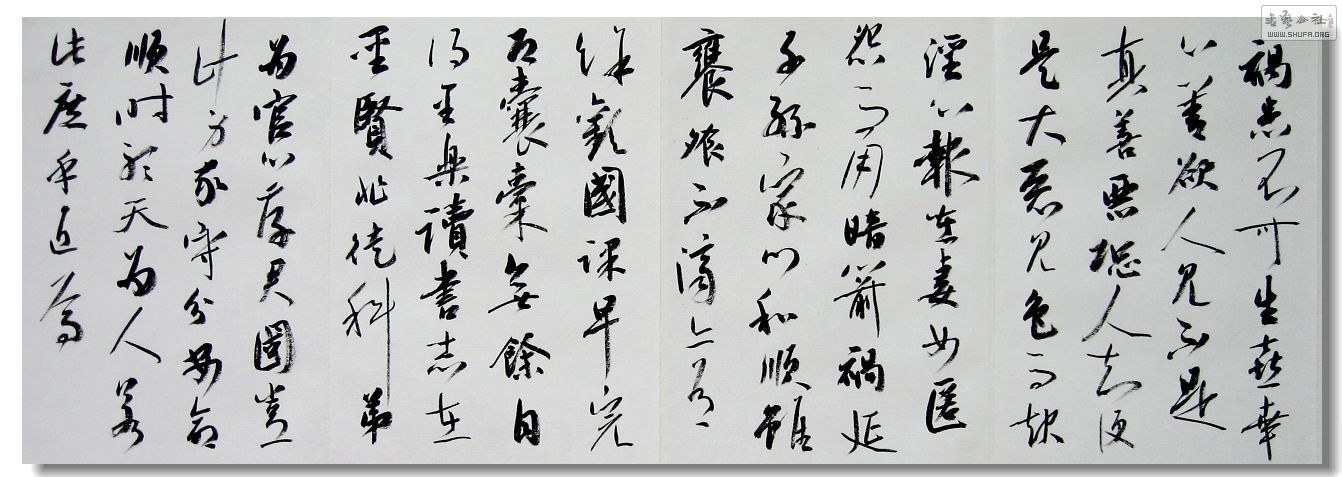 禍患不可生喜幸
心善欲人見不是
真善惡恐人知便
是大惡見色而起
淫心報在妻女匿
怨而用暗箭禍延
子孫家門和順雖
饔飧不濟亦有
餘歡國課早完
即囊橐無餘自
得至樂讀書志在
聖賢非徒科第
為官心存君國豈
計身家守分安命
順時聽天為人若
此庶乎近焉
书艺公社
WWW.SHUFA.ORG